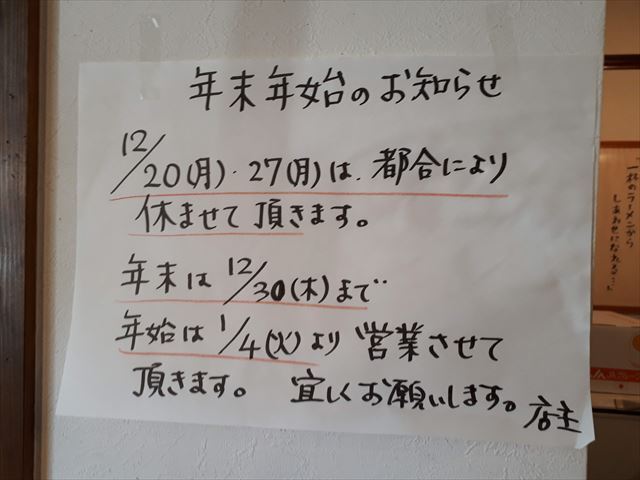 年末年始のお知らせ
12/20(月)・27(月)は、都合により
休ませて頂きます。
年末は12/30(木)まで
年始は1/4(火)より営業させて
頂きます。 宜しくお願いします。店主
一杯のラーメンから
しあわせになれる